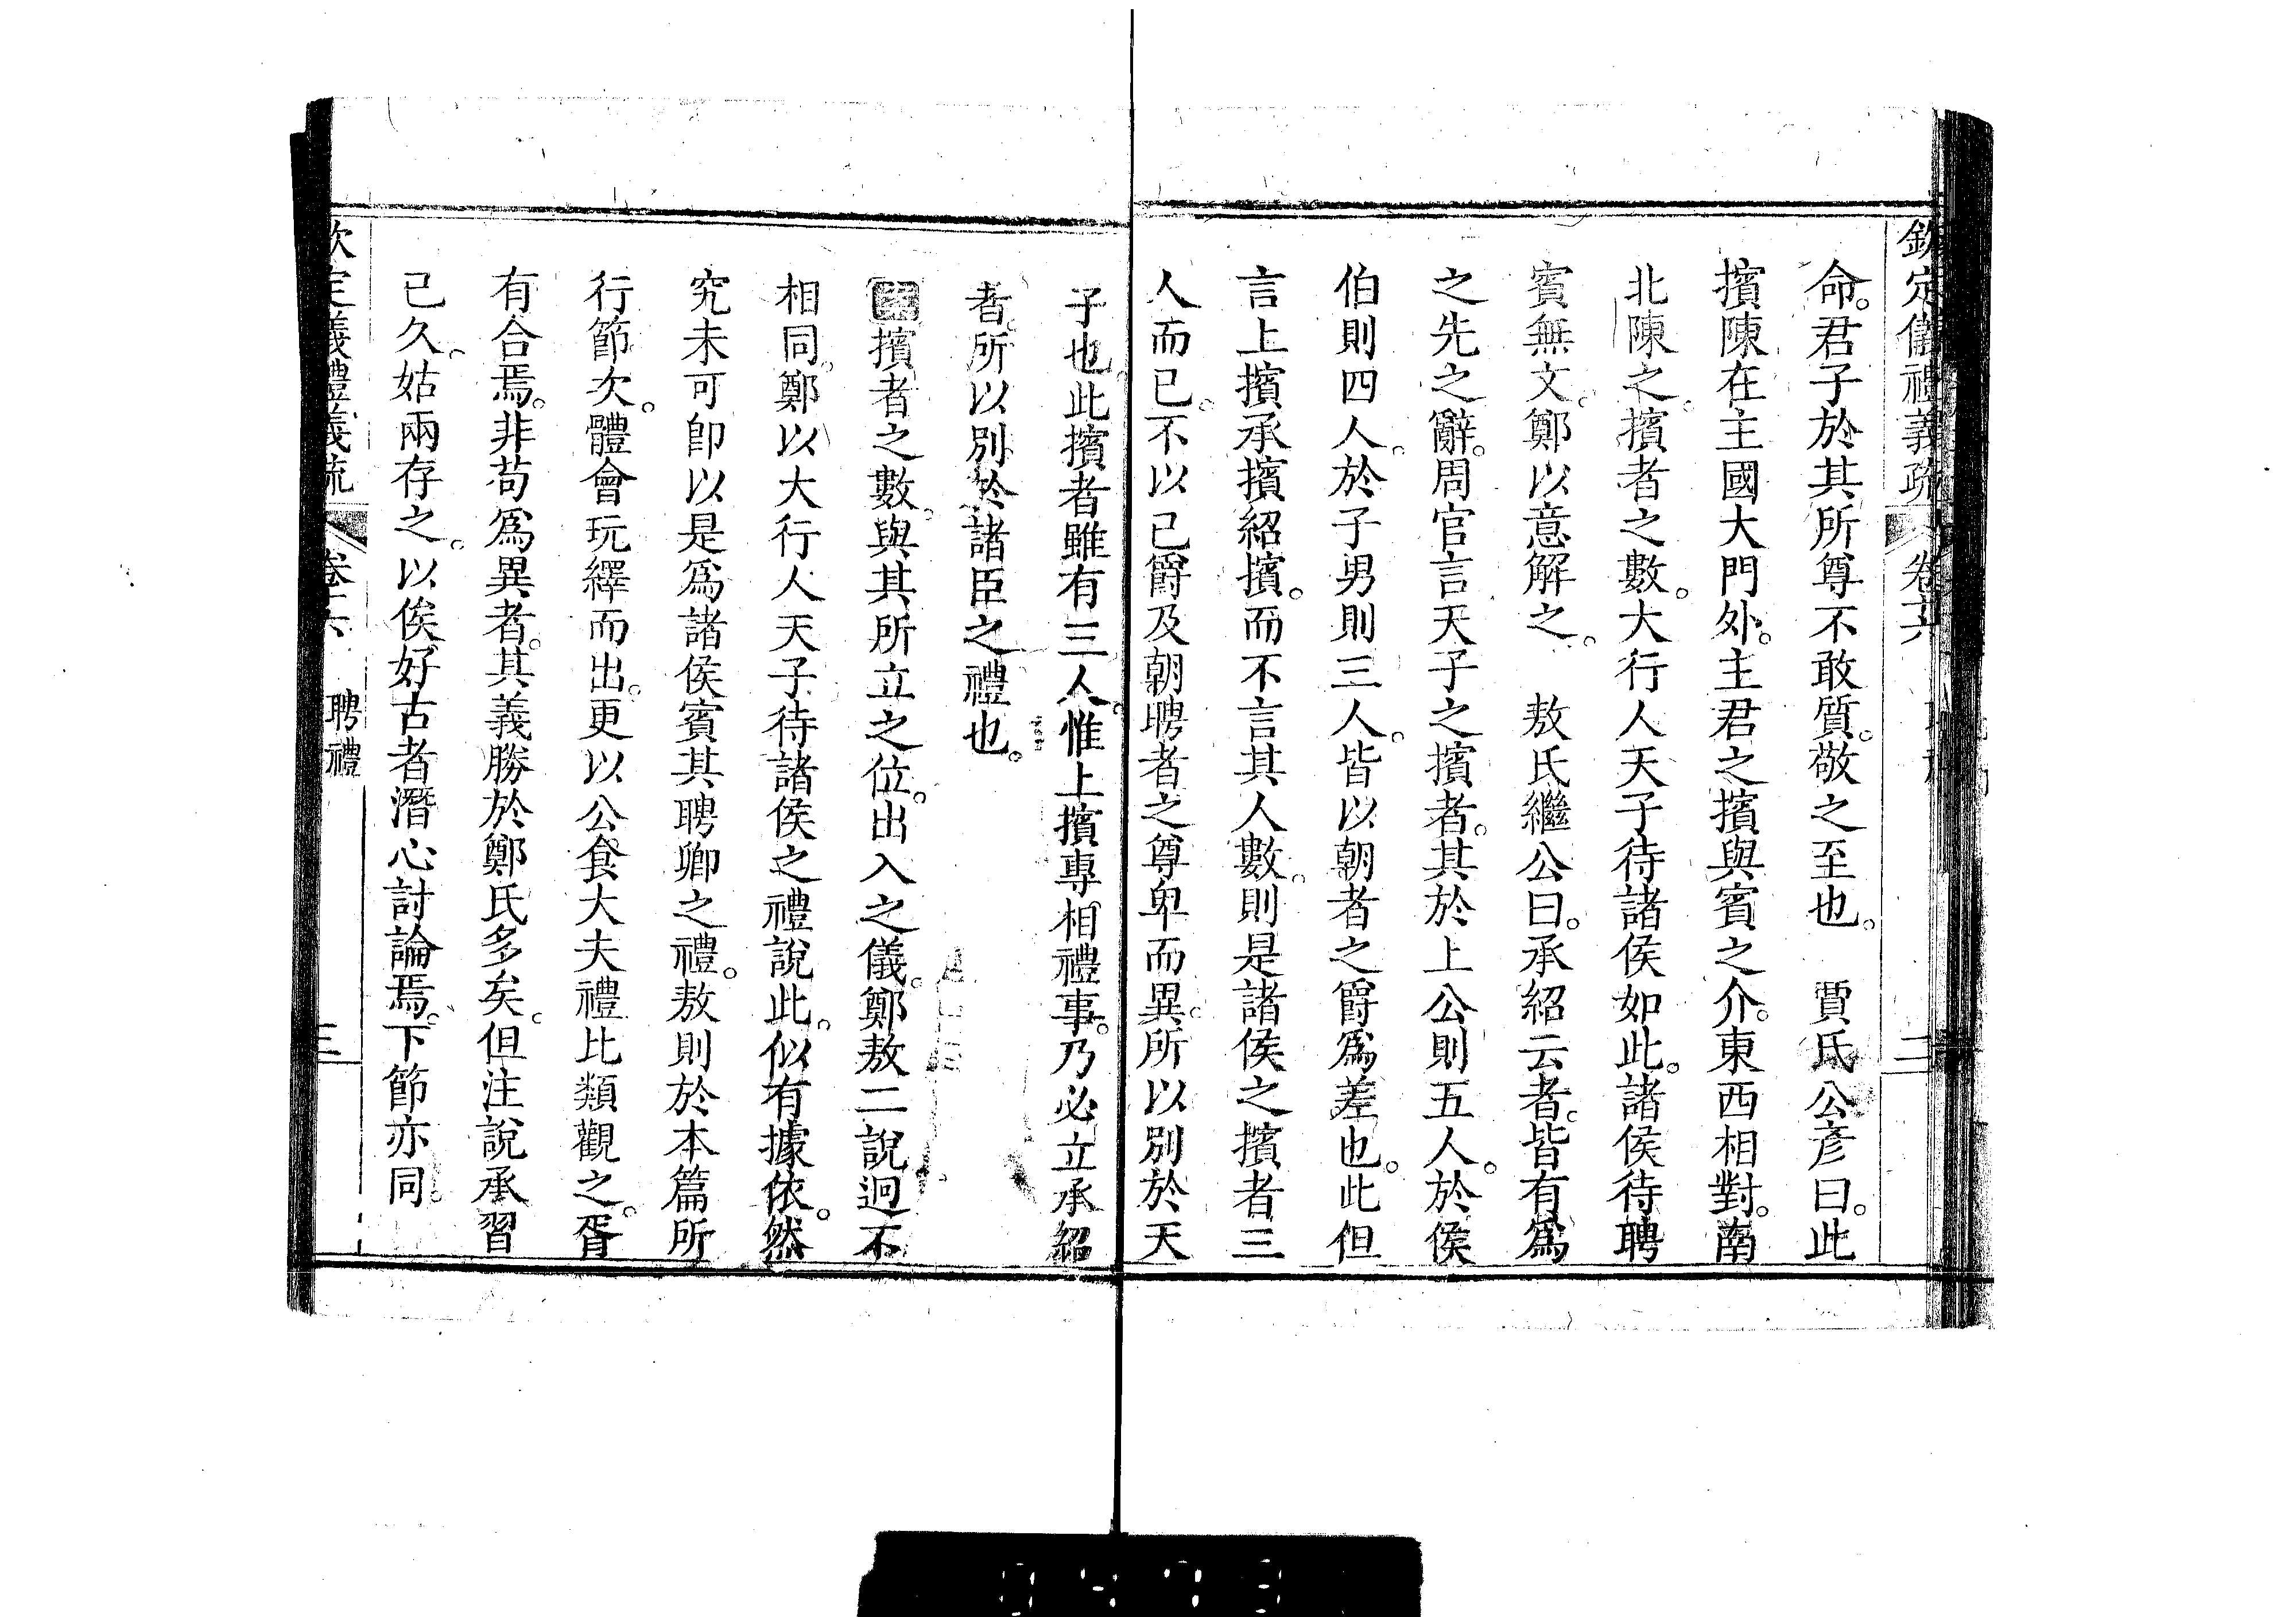 欽定儀禮義疏 卷十六 二
命。君子於其所尊不敢質。敬之至也。 賈氏公彥曰。此
擯陳在主國大門外。主君之擯與賓之介。東西相對。南
北陳之。擯者之數。大行人天子待諸侯如此。諸侯待聘
賓無文。鄭以意解之。 敖氏繼公曰。承紹云者。皆有爲
之先之辭。周官言天子之擯者。其於上公則五人。於侯
伯則四人。於子男則三人。皆以朝者之爵爲差也。此但
言上擯承擯紹擯。而不言其人數。則是諸侯之擯者三
人而已。不以已爵及朝聘者之尊卑而異。所以別於天
子也。此擯者雖有三人。惟上擯專相禮事。乃必立承紹
者。所以別於諸臣之禮也。
擯者之數。與其所立之位。出入之儀。鄭敖二說迥不
相同。鄭以大行人天子待諸侯之禮說此。似有據依。然
究未可卽以是爲諸侯賓其聘卿之禮。敖則於本篇所
行節次。體會玩繹而出。更以公食大夫禮比類觀之。胥
有合焉。非苟爲異者。其義勝於鄭氏多矣。但注說承習
已久。姑兩存之。以俟好古者潛心討論焉。下節亦同。
欽定儀禮義疏 卷十六 聘禮 三